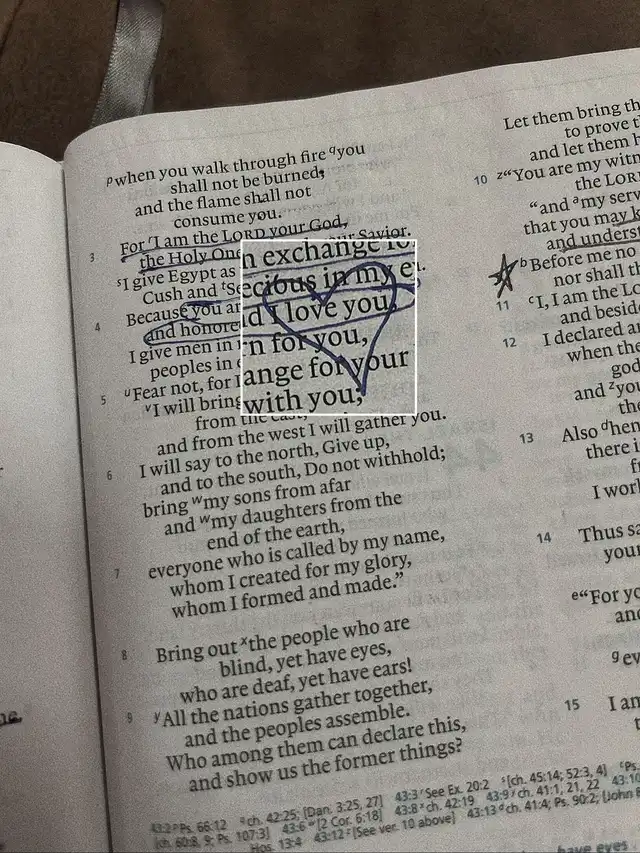 ᵖwhen you walk through fire ᑫyou
shall not be burned,
and the flame shall not
consume you.
3 For ʳI am the LORD your God,
the Holy One ur Savior.
ˢI give Egypt as n exchange fo
Cush and ᵗSe ecious in my e
4 Because you ar
and honore d I love you,
I give men in n for you,
peoples in ange for your
5 ᵘFear not, for I with you;
ᵛI will bring
from the east,
and from the west I will gather you.
6 I will say to the north, Give up,
and to the south, Do not withhold;
bring ʷmy sons from afar
and ʷmy daughters from the
end of the earth,
7 everyone who is called by my name,
whom I created for my glory,
whom I formed and made.”
8 Bring out ˣthe people who are
blind, yet have eyes,
who are deaf, yet have ears!
9 ʸAll the nations gather together,
and the peoples assemble.
Who among them can declare this,
and show us the former things?
Let them bring th
to prove t
and let them h
10 ᶻ“You are my witn
the LORD
“and ᵃmy serv
that you may k
and underst
ᵇBefore me no
nor shall th
11 ᶜI, I am the Lo
and beside
12 I declared an
when the
god
and ᶻyou
the
13 Also ᵈhen
there i
I work
14 Thus sa
your
ᵉ“For yo
and
ᵍev
15 I am
43:2 ᵖPs. 66:12 ᑫch. 42:25; [Dan. 3:25, 27] 43:3 ʳSee Ex. 20:2 ˢ[ch. 45:14; 52:3, 4] ᵗPs.
[ch. 60:8, 9; Ps. 107:3] 43:6 ʷ[2 Cor. 6:18] 43:8 ˣch. 42:19 43:9 ʸch. 41:1, 21, 22 43:10
Hos. 13:4 43:12 ᶻ[See ver. 10 above] 43:13 ᵈch. 41:4; Ps. 90:2; [John 8
have eyes